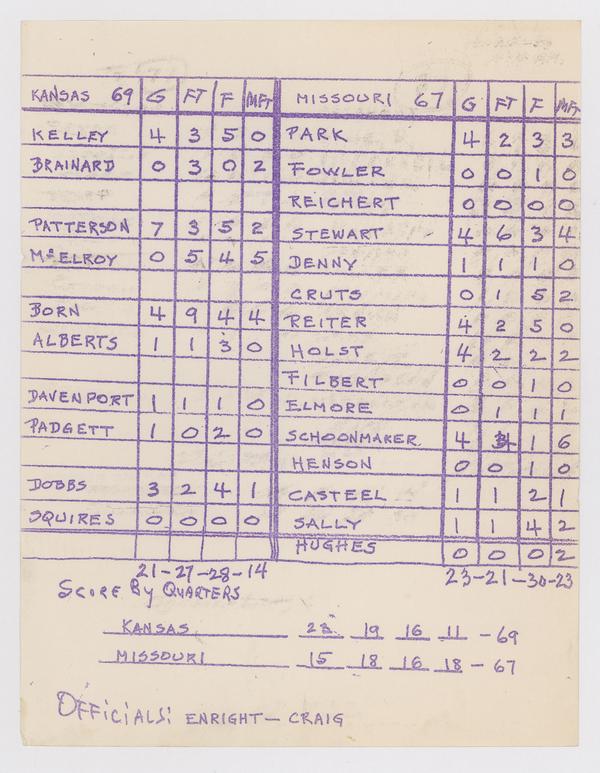 KANSAS 69 G FT F MFT
KELLEY 4 3 5 0
BRAINARD 0 3 0 2
PATTERSON 7 3 5 2
McELROY 0 5 4 5
BORN 4 9 4 4
ALBERTS 1 1 3 0
DAVENPORT 1 1 1 0
PADGETT 1 0 2 0
DOBBS 3 2 4 1
SQUIRES 0 0 0 0
21-27-28-14
MISSOURI 67 G FT F MFT
PARK 4 2 3 3
FOWLER 0 0 1 0
REICHERT 0 0 0 0
STEWART 4 6 3 4
DENNY 1 1 1 0
CRUTS 0 1 5 2
REITER 4 2 5 0
HOLST 4 2 2 2
FILBERT 0 0 1 0
ELMORE 0 1 1 1
SCHOONMAKER 4 4 1 6
HENSON 0 0 1 0
CASTEEL 1 1 2 1
SALLY 1 1 4 2
HUGHES 0 0 0 2
23-21-30-23
SCORE By QUARTERS
KANSAS 23 19 16 11 - 69
MISSOURI 15 18 16 18 - 67
OFFiCiALS: ENRIGHT - CRAIG